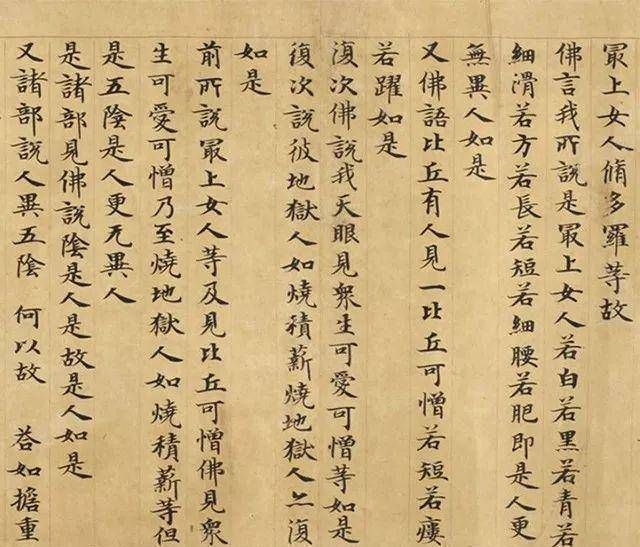 冣上女人脩多羅等故
佛言我所說是冣上女人若白若黑若青若
細滑若方若長若短若細腰若肥即是人更
無異人如是
又佛語比丘有人見一比丘可憎若短若瘻
若躍如是
復次佛說我天眼見眾生可愛可憎等如是
復次說彼地獄人如燒積薪燒地獄人亦復
如是
前所說冣上女人等及見比丘可憎佛見眾
生可愛可憎乃至燒地獄人如燒積薪等但
是五陰是人更无異人
是諸部見佛說陰是人是故是人如是
又諸部說人異五陰 何以故 荅如擔重